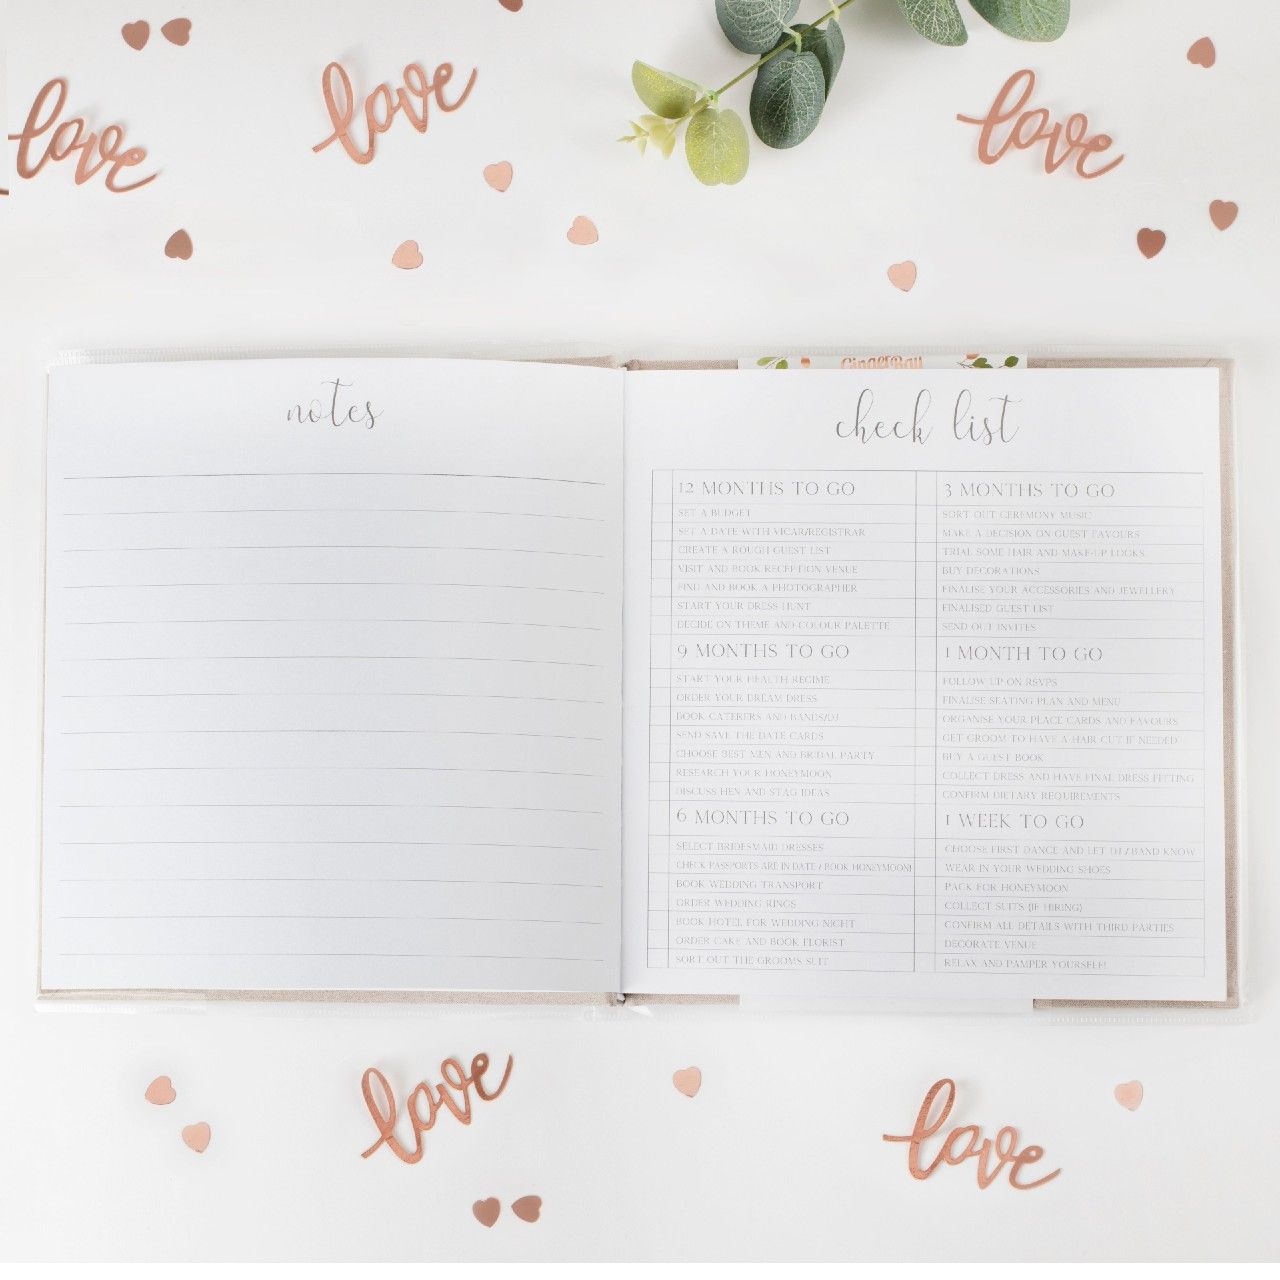 love
love
love
Ginger Ray
notes
check list
12 MONTHS TO GO
SET A BUDGET
SET A DATE WITH VICAR/REGISTRAR
CREATE A ROUGH GUEST LIST
VISIT AND BOOK RECEPTION VENUE
FIND AND BOOK A PHOTOGRAPHER
START YOUR DRESS HUNT
DECIDE ON THEME AND COLOUR PALETTE
9 MONTHS TO GO
START YOUR HEALTH REGIME
ORDER YOUR DREAM DRESS
BOOK CATERERS AND BANDS/DJ
SEND SAVE THE DATE CARDS
CHOOSE BEST MEN AND BRIDAL PARTY
RESEARCH YOUR HONEYMOON
DISCUSS HEN AND STAG IDEAS
6 MONTHS TO GO
SELECT BRIDESMAID DRESSES
CHECK PASSPORTS ARE IN DATE / BOOK HONEYMOON!
BOOK WEDDING TRANSPORT
ORDER WEDDING RINGS
BOOK HOTEL FOR WEDDING NIGHT
ORDER CAKE AND BOOK FLORIST
SORT OUT THE GROOMS SUIT
3 MONTHS TO GO
SORT OUT CEREMONY MUSIC
MAKE A DECISION ON GUEST FAVOURS
TRIAL SOME HAIR AND MAKE-UP LOOKS
BUY DECORATIONS
FINALISE YOUR ACCESSORIES AND JEWELLERY
FINALISED GUEST LIST
SEND OUT INVITES
1 MONTH TO GO
FOLLOW UP ON RSVPS
FINALISE SEATING PLAN AND MENU
ORGANISE YOUR PLACE CARDS AND FAVOURS
GET GROOM TO HAVE A HAIR CUT IF NEEDED
BUY A GUEST BOOK
COLLECT DRESS AND HAVE FINAL DRESS FITTING
CONFIRM DIETARY REQUIREMENTS
1 WEEK TO GO
CHOOSE FIRST DANCE AND LET DJ / BAND KNOW
WEAR IN YOUR WEDDING SHOES
PACK FOR HONEYMOON
COLLECT SUITS (IF HIRING)
CONFIRM ALL DETAILS WITH THIRD PARTIES
DECORATE VENUE
RELAX AND PAMPER YOURSELF!
love
love